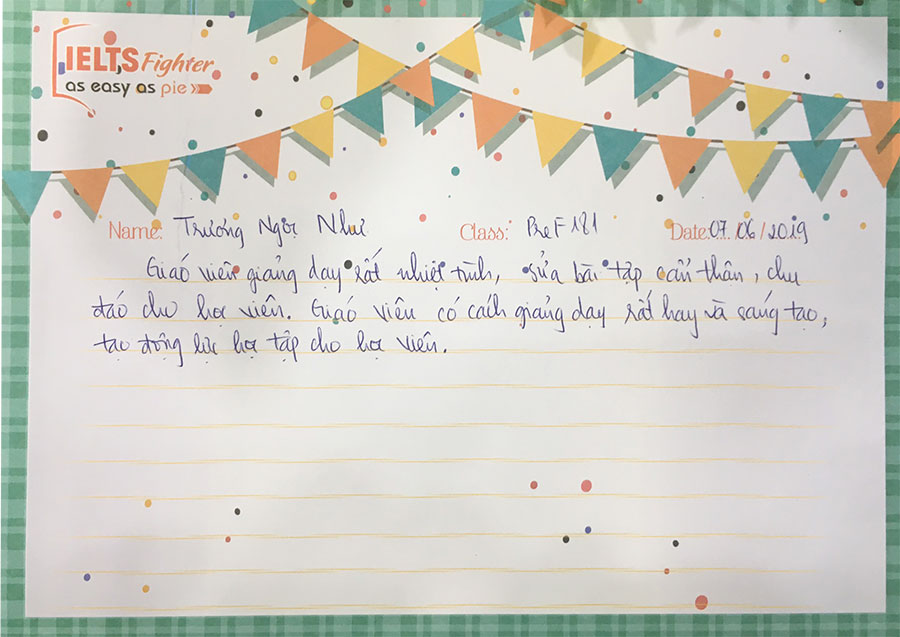 IELTS Fighter
as easy as pie
Name: Trương Ngọc Như Class: PreF181 Date: 07/06/2019
Giáo viên giảng dạy rất nhiệt tình, sửa bài tập cẩn thận, chu
đáo cho học viên. Giáo viên có cách giảng dạy rất hay và sáng tạo,
tạo động lực học tập cho học viên.